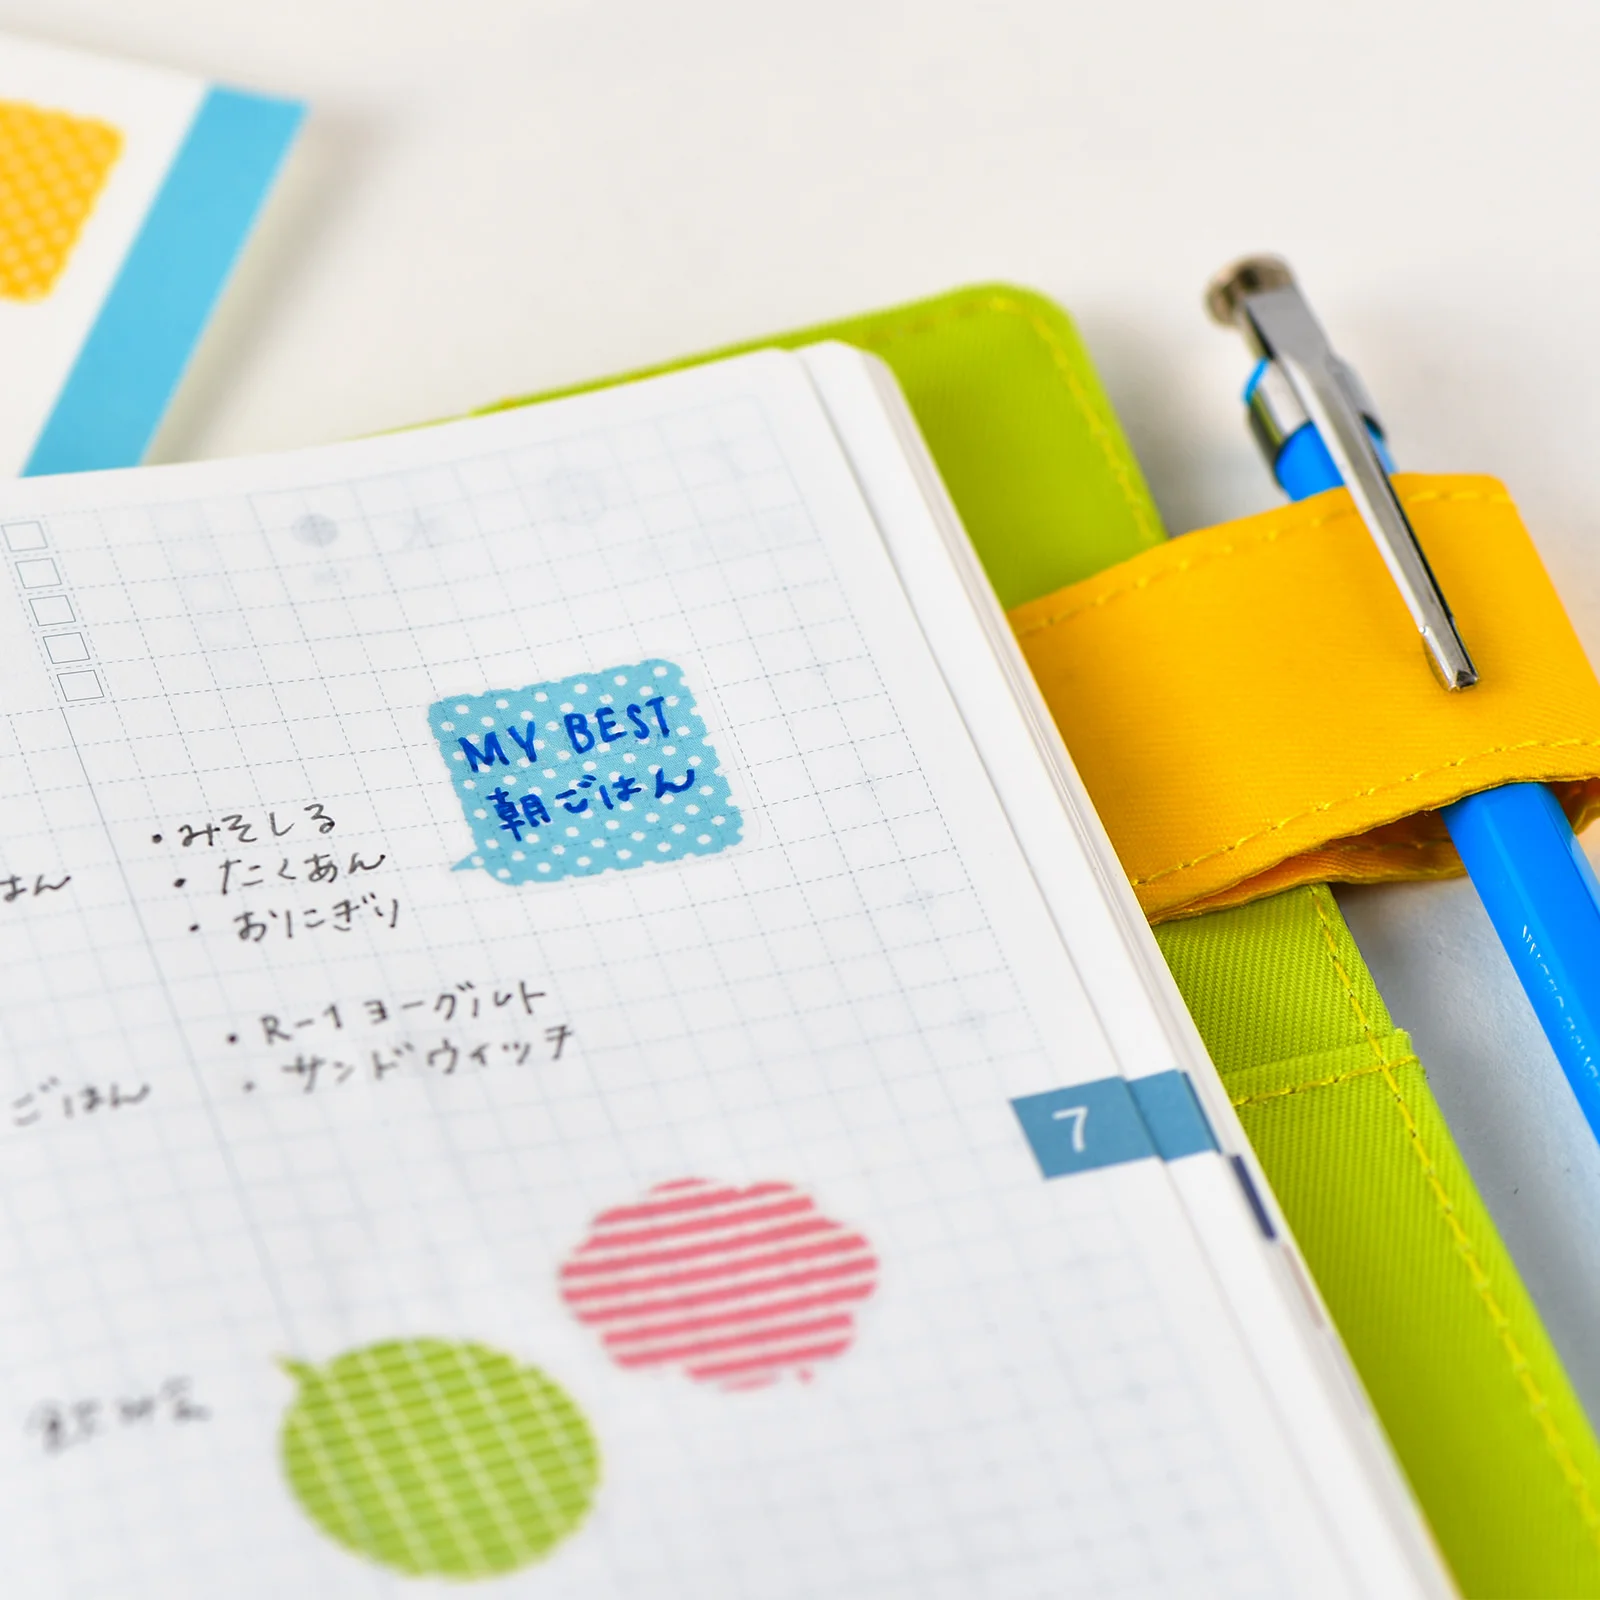 MY BEST
朝ごはん
・みそしる
・たくあん
・おにぎり
はん
・R-1ヨーグルト
・サンドウィッチ
ごはん
7